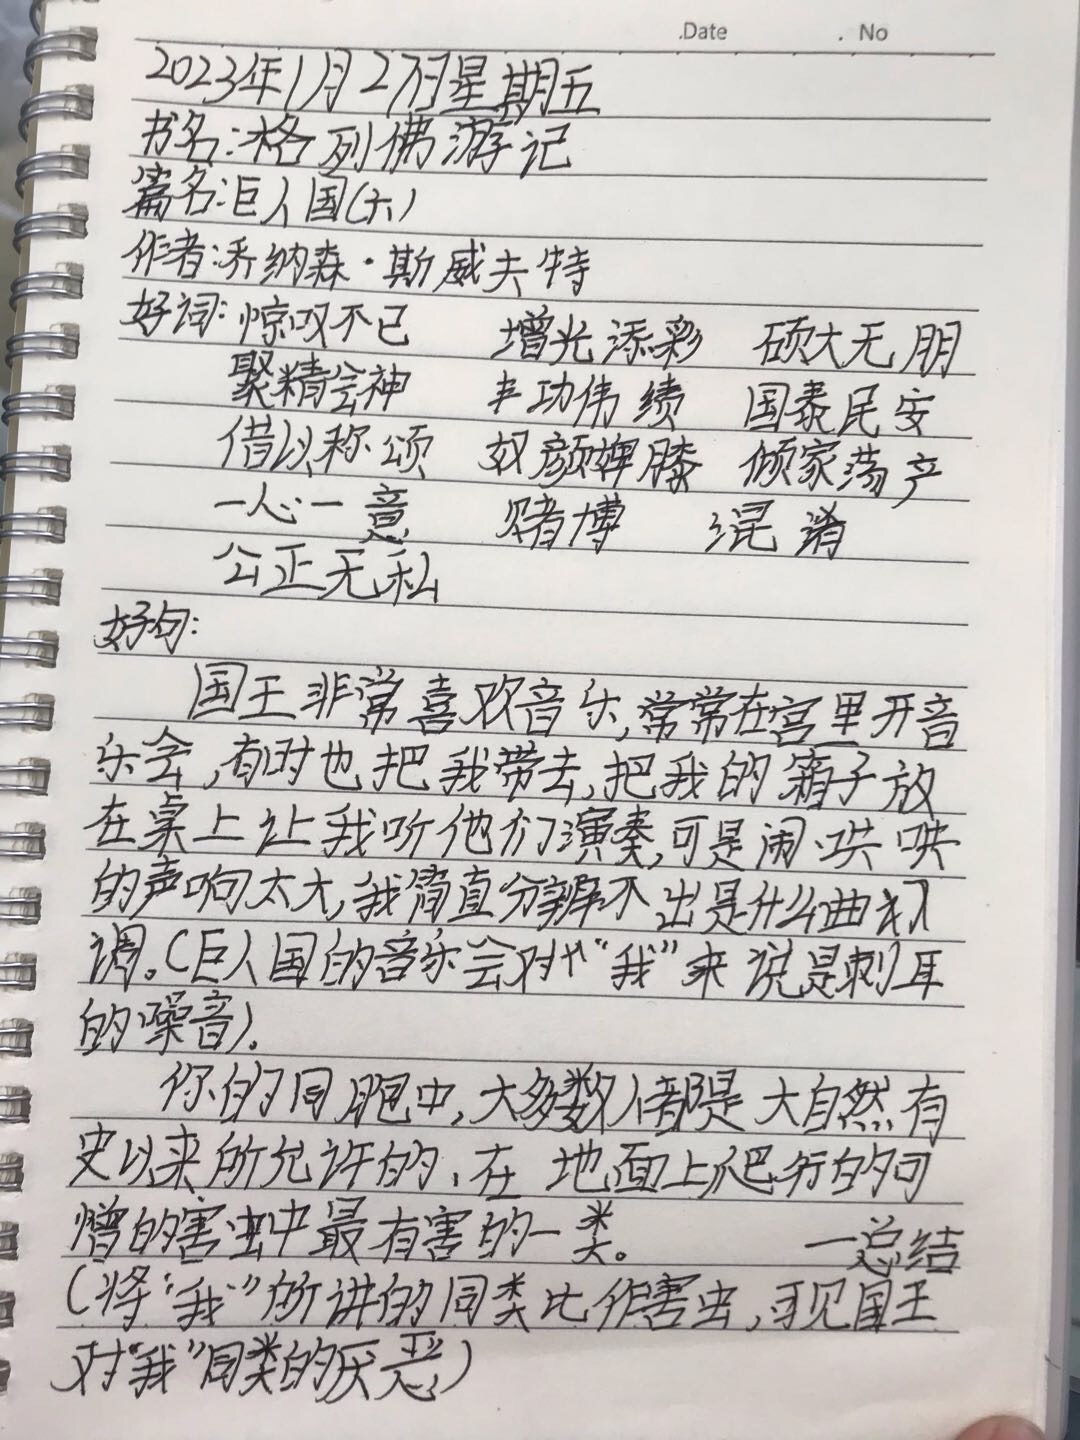 Date No
2023年1月27日星期五
书名:格列佛游记
篇名:巨人国(六)
作者:乔纳森·斯威夫特
好词:惊叹不已 增光添彩 硕大无朋
聚精会神 丰功伟绩 国泰民安
借以称颂 奴颜婢膝 倾家荡产
一心一意 赌博 混淆
公正无私
好句:
国王非常喜欢音乐,常常在宫里开音
乐会,有时也把我带去,把我的箱子放
在桌上让我听他们演奏,可是闹哄哄
的声响太大,我简直分辨不出是什么曲
调。(巨人国的音乐会对“我”来说是刺耳
的噪音)。
你的同胞中,大多数人都是大自然有
史以来所允许的、在地面上爬行的可
憎的害虫中最有害的一类。 一总结
(将“我”所讲的同类比作害虫,可见国王
对“我”同类的厌恶)